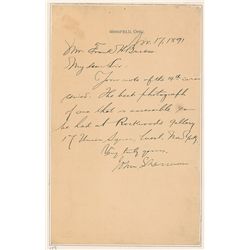 MANSFIELD, OHIO.
Nov. 17, 1891
Mr. Frank H.
My dear Sir
Your note of the 14th is received
The best photograph
of me that is accessible can
be had at Rockwoods Gallery
17 Union Square, West, New York
Very truly yours,
John Sherman